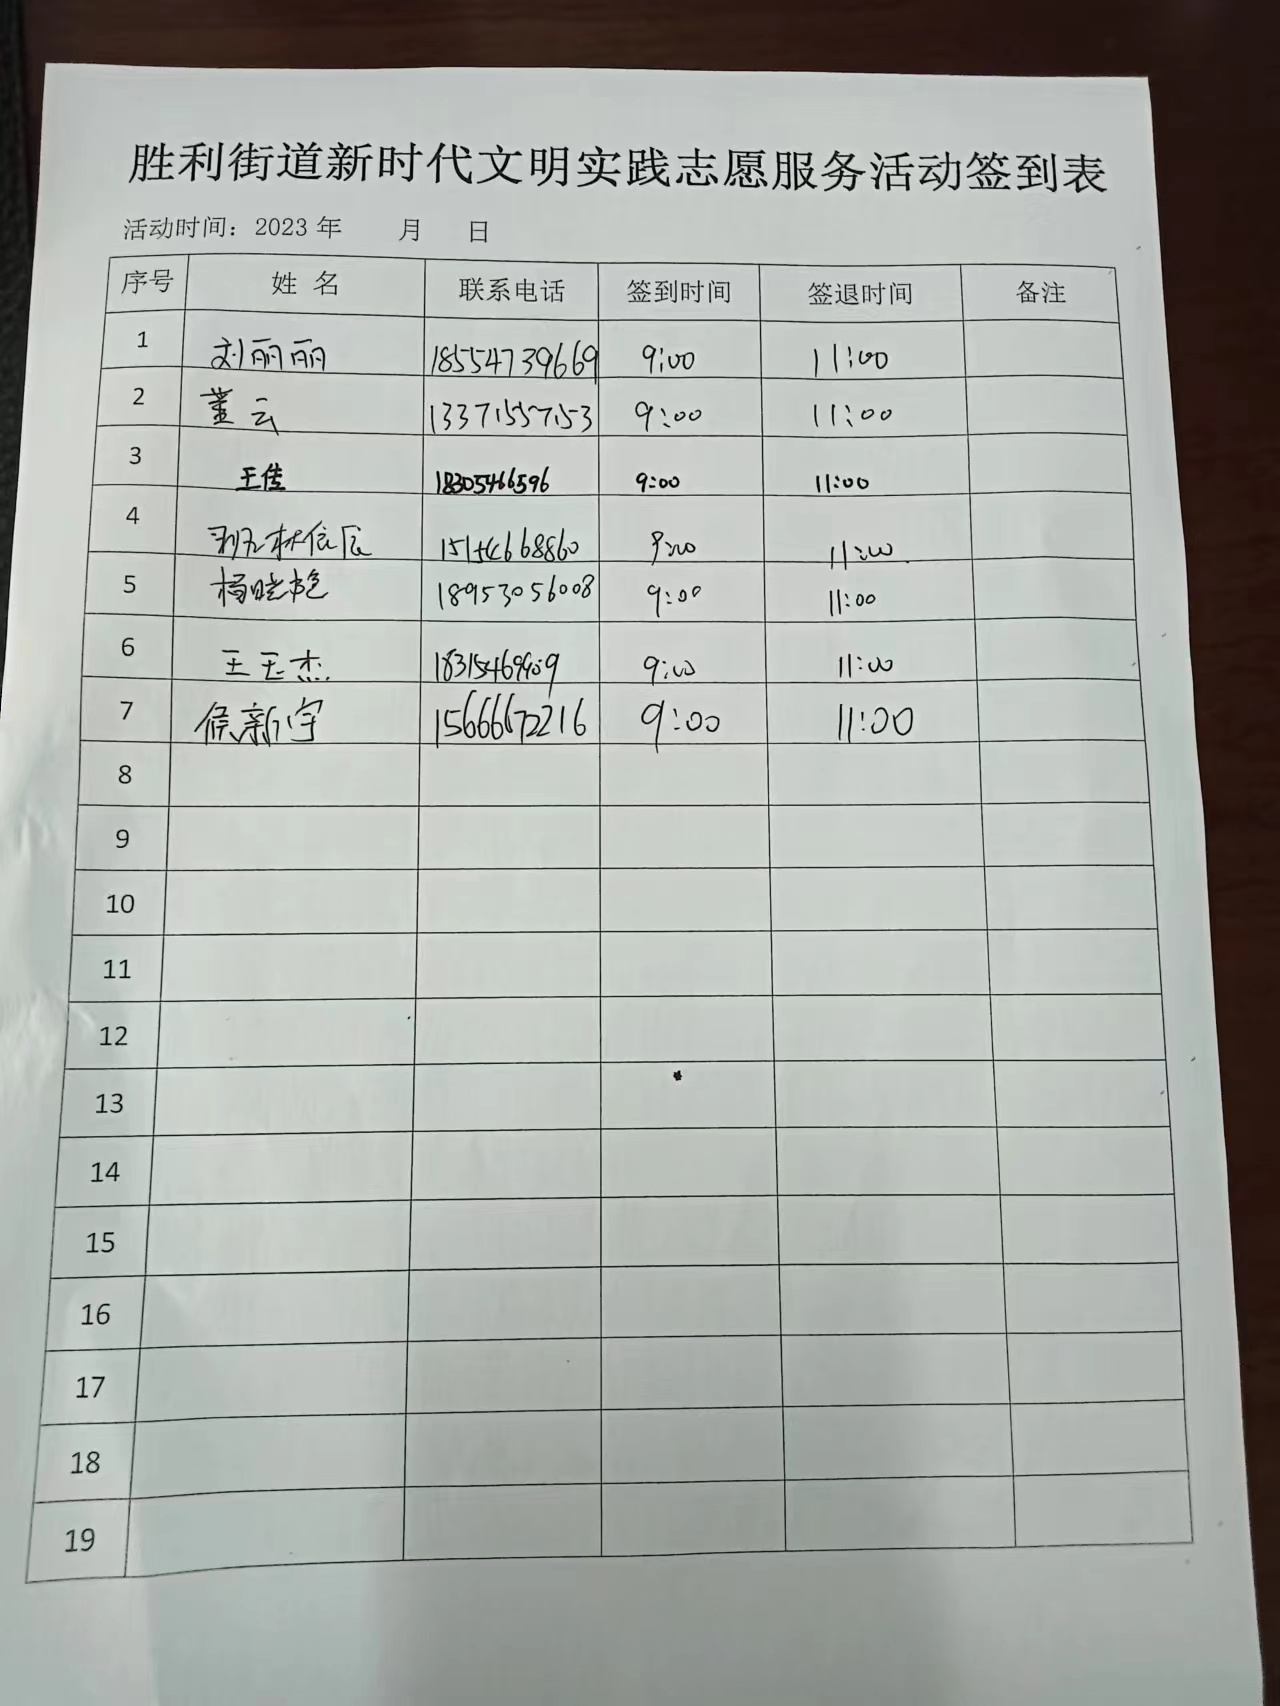 胜利街道新时代文明实践志愿服务活动签到表
活动时间：2023 年 月 日
序号 姓 名 联系电话 签到时间 签退时间 备注
1 刘丽丽 18554739669 9:00 11:00
2 董云 13371557153 9:00 11:00
3 王佳 18305466596 9:00 11:00
4 9:00 11:00
5 杨晓艳 18953056008 9:00 11:00
6 王玉杰 9:00 11:00
7 侯新宇 15666672216 9:00 11:00
8
9
10
11
12
13
14
15
16
17
18
19